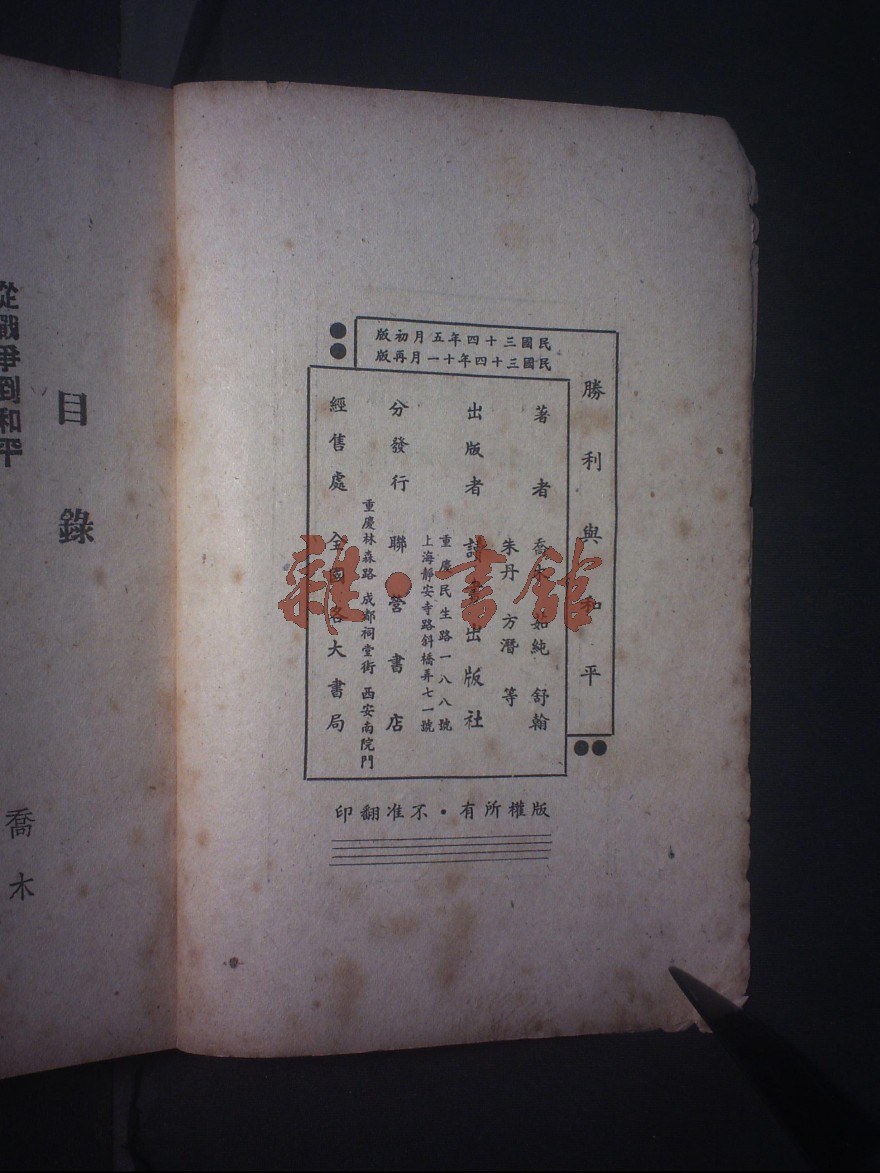 民國三十四年五月初版
民國三十四年十一月再版
勝利與和平
著者 喬木 茹純 舒翰
朱丹 方潛 等
出版者 詩畫出版社
重慶民生路一八八號
上海靜安寺路斜橋弄七一號
分發行 聯營書店
重慶林森路 成都祠堂街 西安南院門
經售處 全國各大書局
版權所有・不准翻印
目錄
從戰爭到和平
喬木
雜・書館